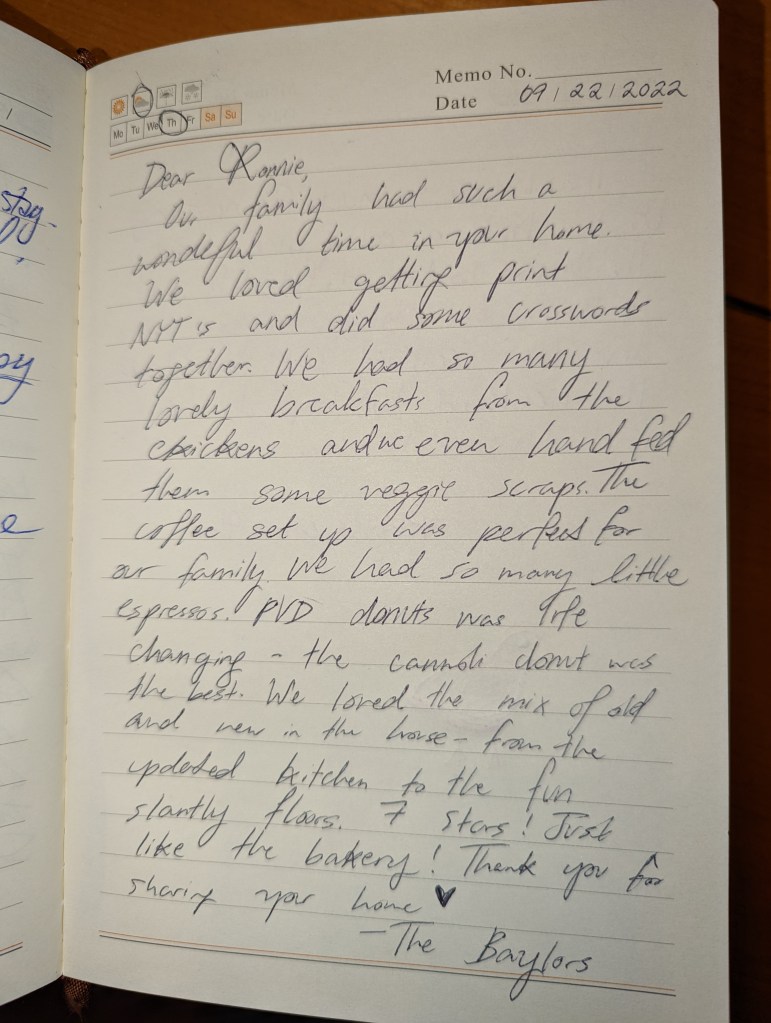 Memo No.
Date 09/22/2022
Mo Tu We Th Fr Sa Su
Dear Ronnie,
Our family had such a
wondeful time in your home.
We loved getting print
NYT's and did some crosswords
together. We had so many
lovely breakfasts from the
chickens and we even hand fed
them some veggie scraps. The
coffee set up was perfect for
our family. We had so many little
espressos! PVD donuts was life
changing - the cannoli donut was
the best. We loved the mix of old
and new in the house - from the
updated kitchen to the fun
slantly floors. 7 stars! Just
like the bakery! Thank you for
sharing your home ♥
- The Baylors
stay.